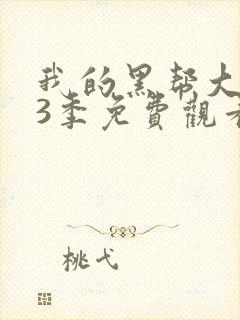 我的黑帮大
3季免費觀看
桃弋